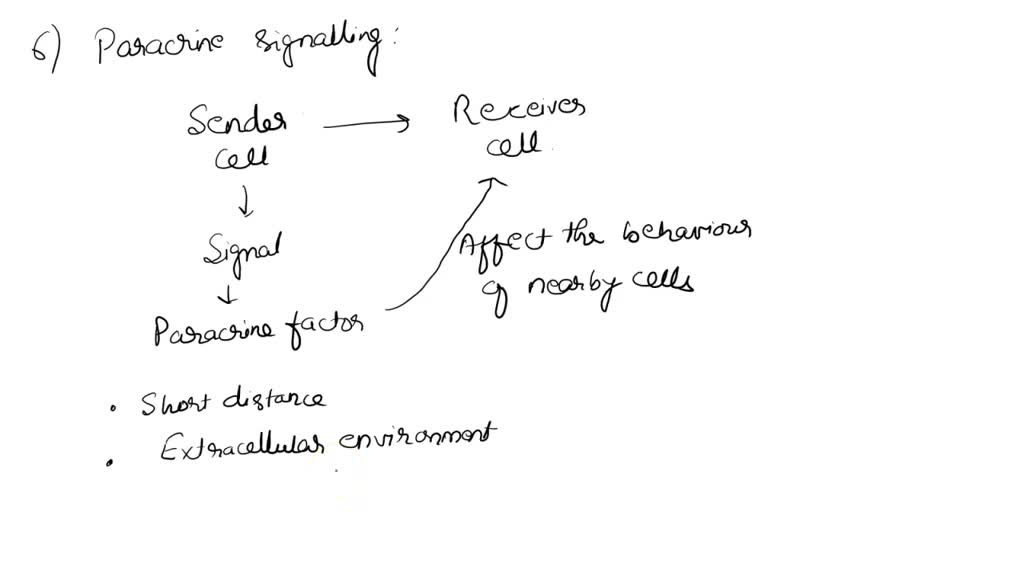 6) Paracrine signalling:
Sender cell → Receiver cell
↓
Signal
↓
Paracrine factor
Affect the behaviour
of nearby cells
• Short distance
• Extracellular environment